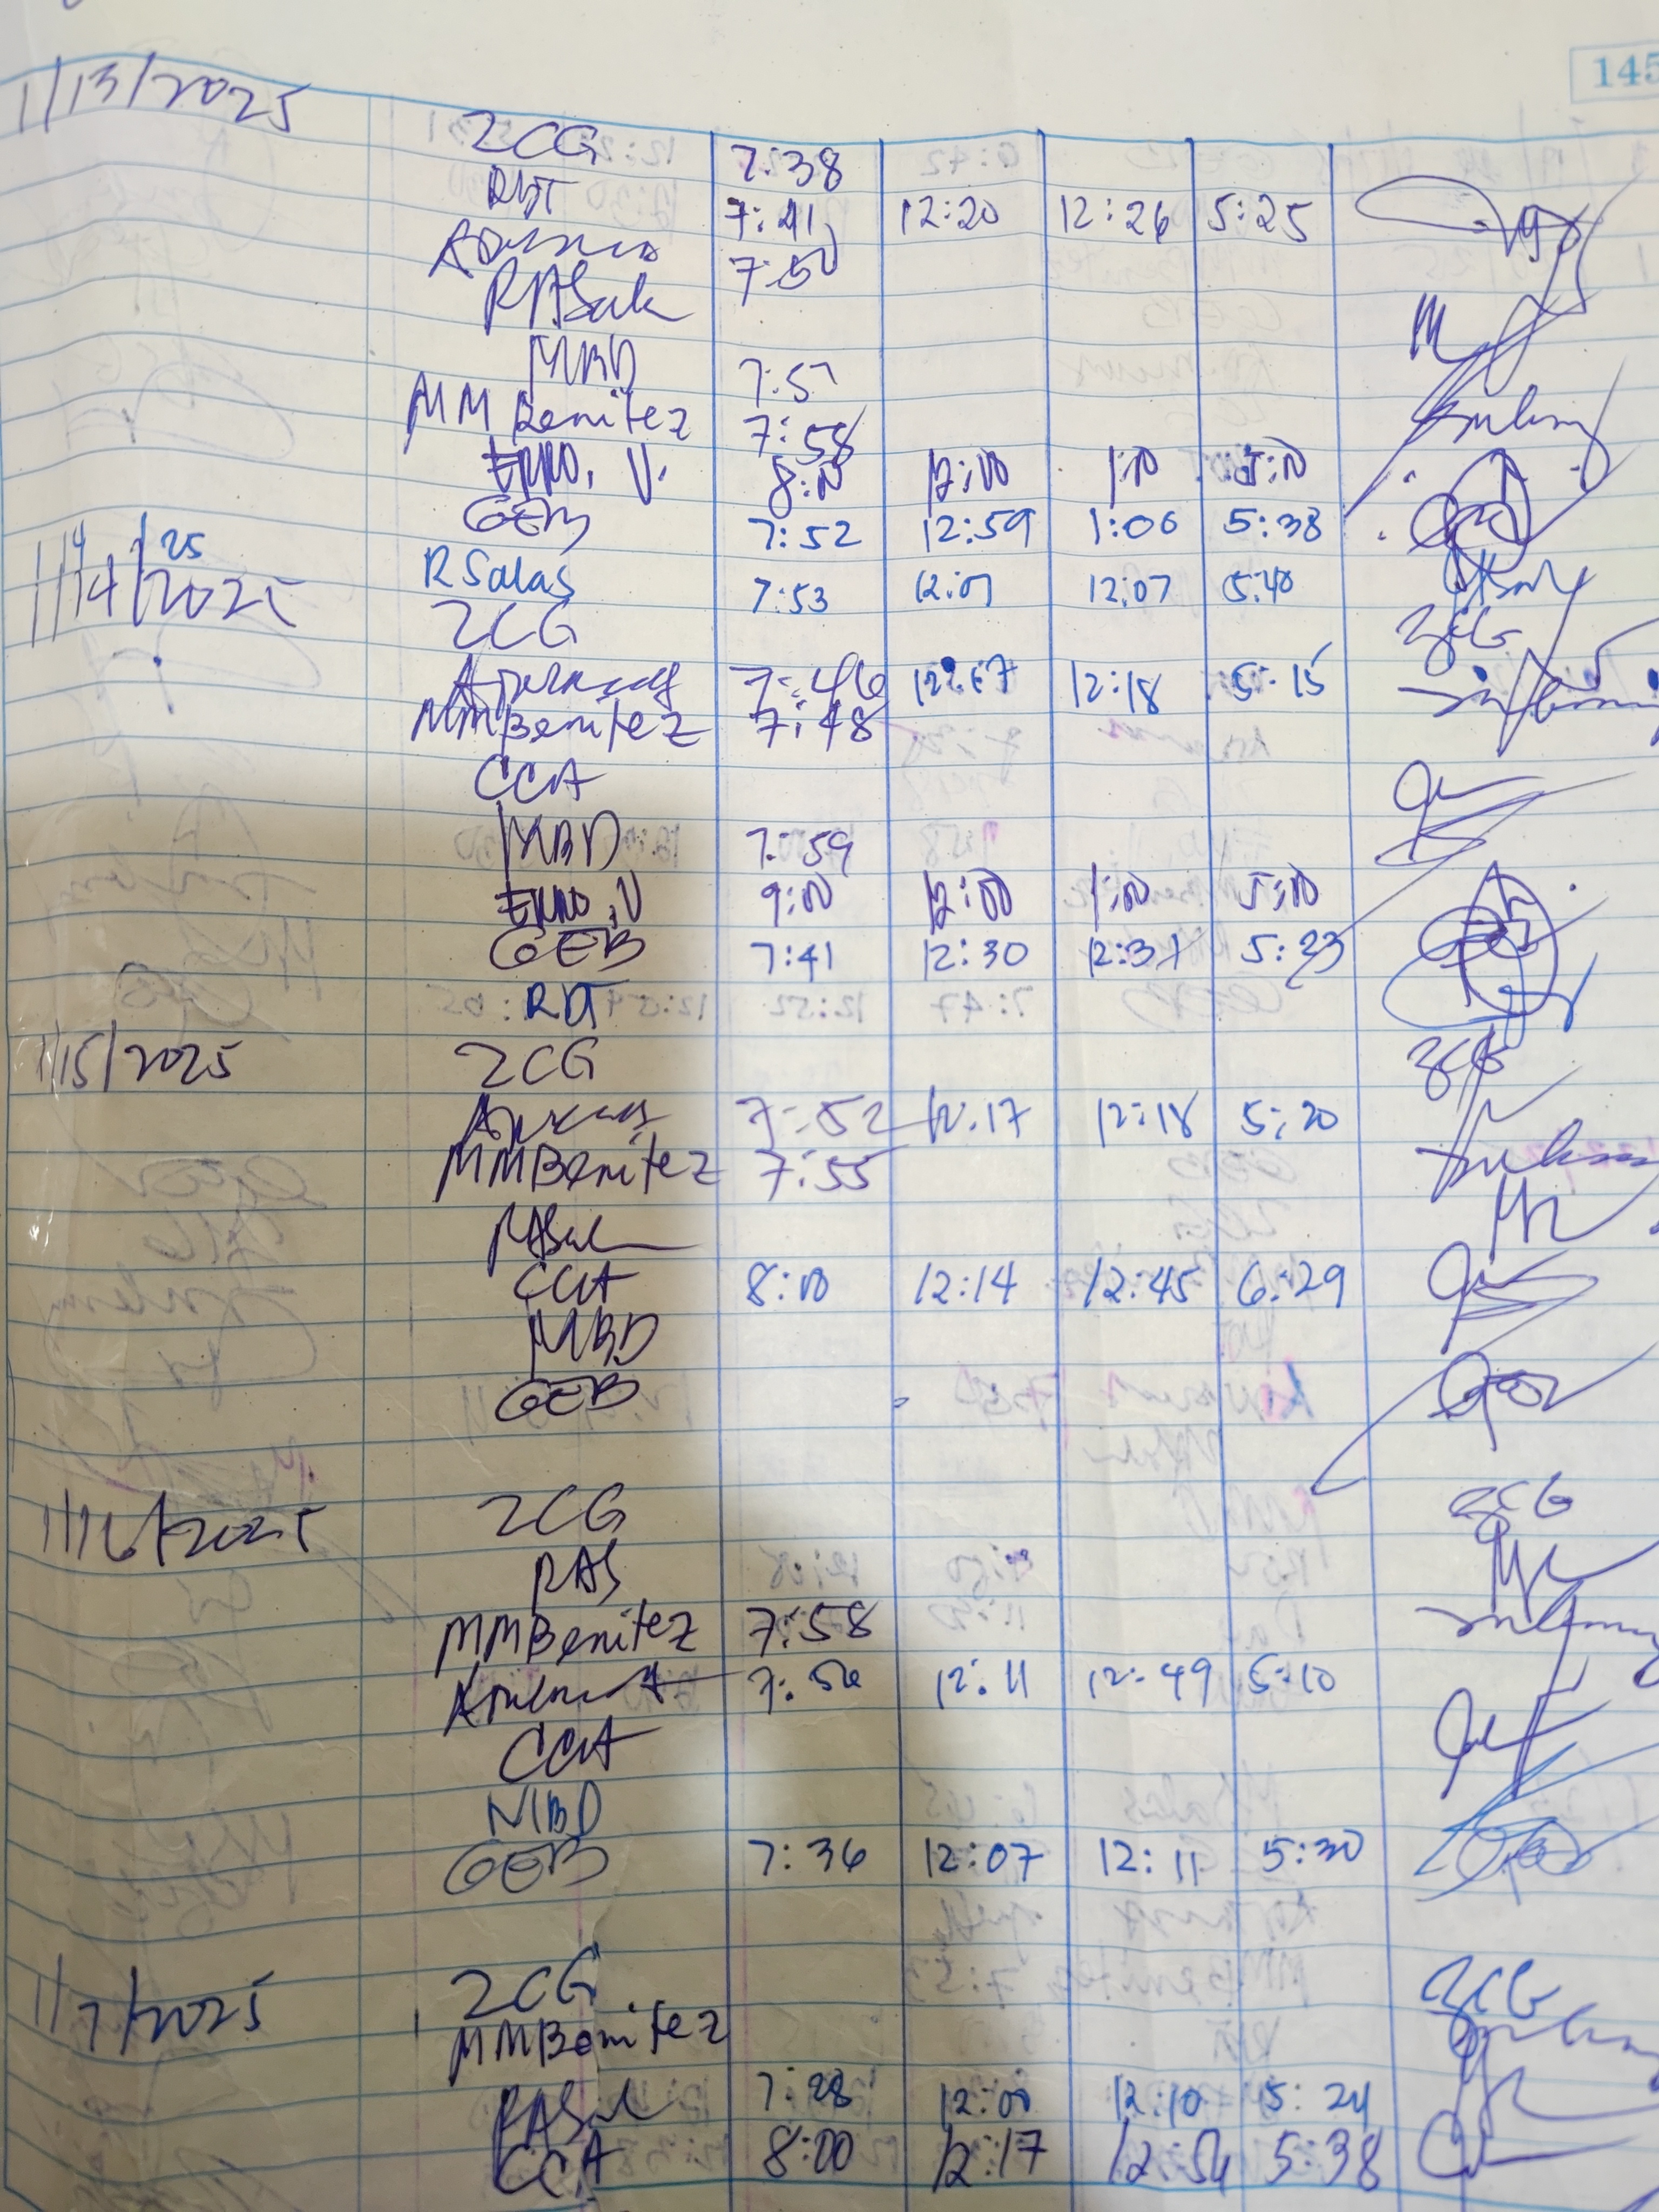 145
1/13/2025
ZCG 7:38
RDT 7:41 12:20 12:26 5:25
7:50
RASal
MBD 7:57
MM Benitez 7:58
ERNO, V. 8:00 12:00 1:00 5:00
GEB 7:52 12:59 1:06 5:38
1/14/25 R Salas 7:53 12:07 12:07 5:40
1/14/2025 ZCG
7:46 12:17 12:18 5:15
MMBenitez 7:48
CCA
MBD 7:59
ERNO, V 9:00 12:00 1:00 5:00
GEB 7:41 12:30 12:31 5:23
RDT
1/15/2025 ZCG ZCG
7:52 12:17 12:18 5:20
MMBenitez 7:55
RASal
CCA 8:00 12:14 12:45 6:29
MBD
GEB
1/16/2025 ZCG ZCG
RAS
MMBenitez 7:58
7:56 12:11 12:49 5:10
CCA
MBD
GEB 7:36 12:07 12:11 5:30
1/17/2025 ZCG ZCG
MMBenitez
RASal 7:28 12:00 12:10 5:24
CCA 8:00 12:17 12:54 5:38